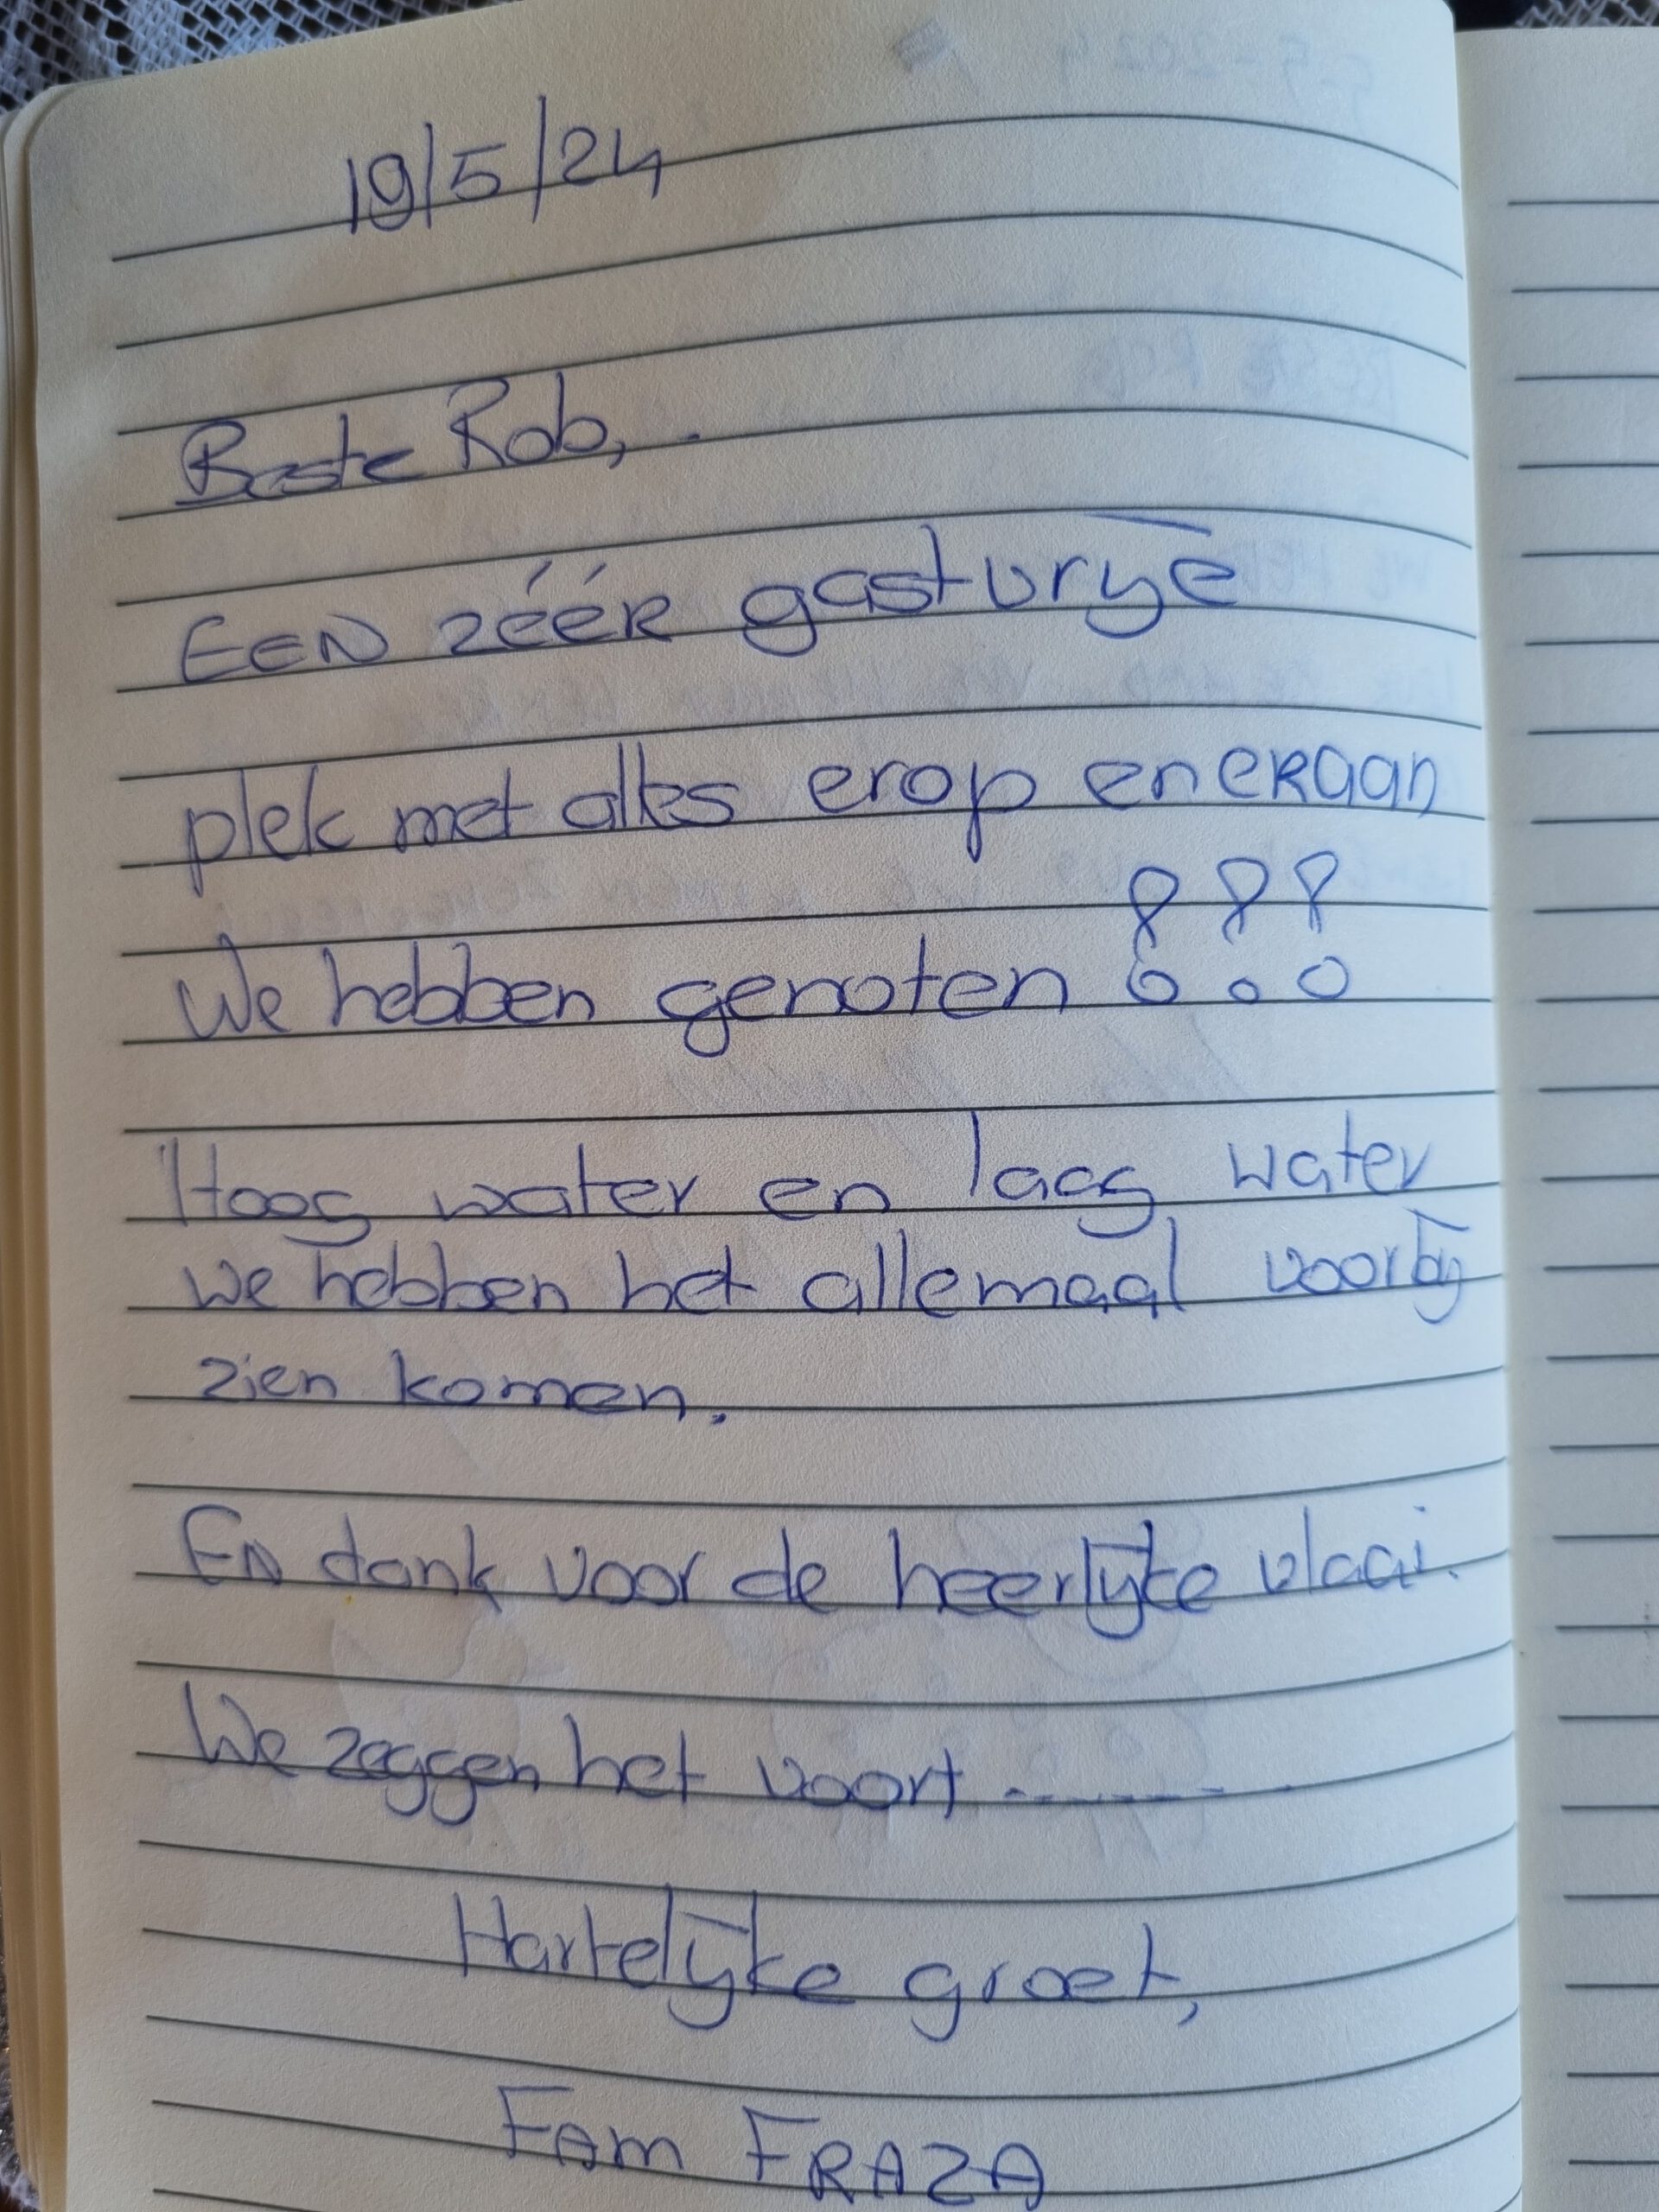 19/5/24
Beste Rob,
EEN zéér gastvrye
plek met alles erop en eraan
We hebben genoten !!!
Hoog water en laag water
we hebben het allemaal voorbij
zien komen.
En dank voor de heerlijke vlaai.
We zeggen het voort ........
Hartelijke groet,
Fam FRAZA